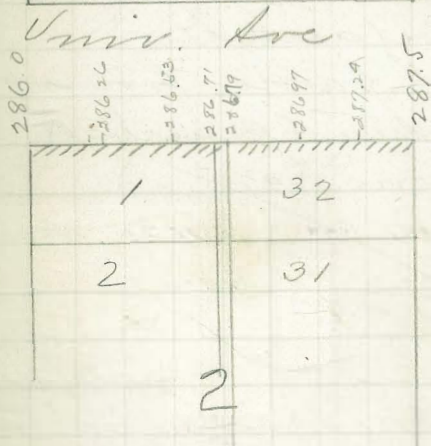 Univ. Ave
286.0 286.26 286.53 286.71 286.79 286.97 287.24 287.5
1 32
2 31
2